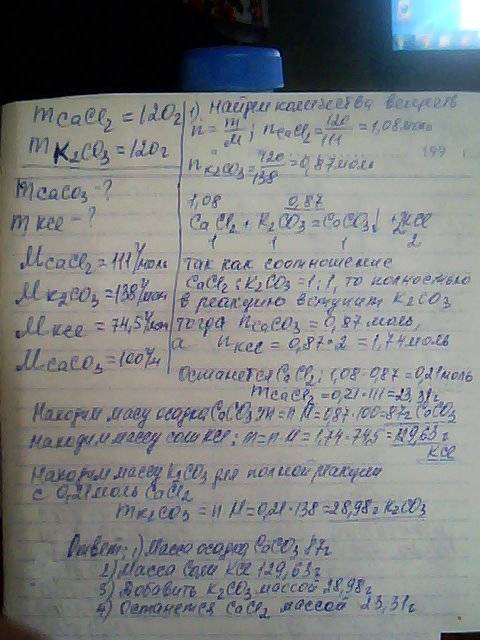 m CaCl2 = 120г
m K2CO3 = 120г
m CaCO3 - ?
m KCl - ?
M CaCl2 = 111 г/моль
M K2CO3 = 138 г/моль
M KCl = 74,5 г/моль
M CaCO3 = 100 г/м
1) Найдем количества веществ
n = m/M; n CaCl2 = 120/111 = 1,08 моль
n K2CO3 = 120/138 = 0,87 моль
1,08 0,87
CaCl2 + K2CO3 = CaCO3↓ + 2KCl
1 1 1 2
так как соотношение
CaCl2 : K2CO3 = 1:1, то полностью
в реакцию вступит K2CO3
тогда n CaCO3 = 0,87 моль,
а n KCl = 0,87·2 = 1,74 моль
Останется CaCl2: 1,08-0,87=0,21 моль
m CaCl2 = 0,21·111 = 23,31г
Находим массу осадка CaCO3: m = n·M = 0,87·100 = 87г CaCO3
Находим массу соли KCl: m = n·M = 1,74·74,5 = 129,63г
KCl
Находим массу K2CO3 для полной реакции
с 0,21 моль CaCl2
m K2CO3 = n·M = 0,21·138 = 28,98г K2CO3
Ответ: 1) Масса осадка CaCO3 87г
2) Масса соли KCl 129,63г
3) Добавить K2CO3 массой 28,98г
4) Останется CaCl2 массой 23,31г